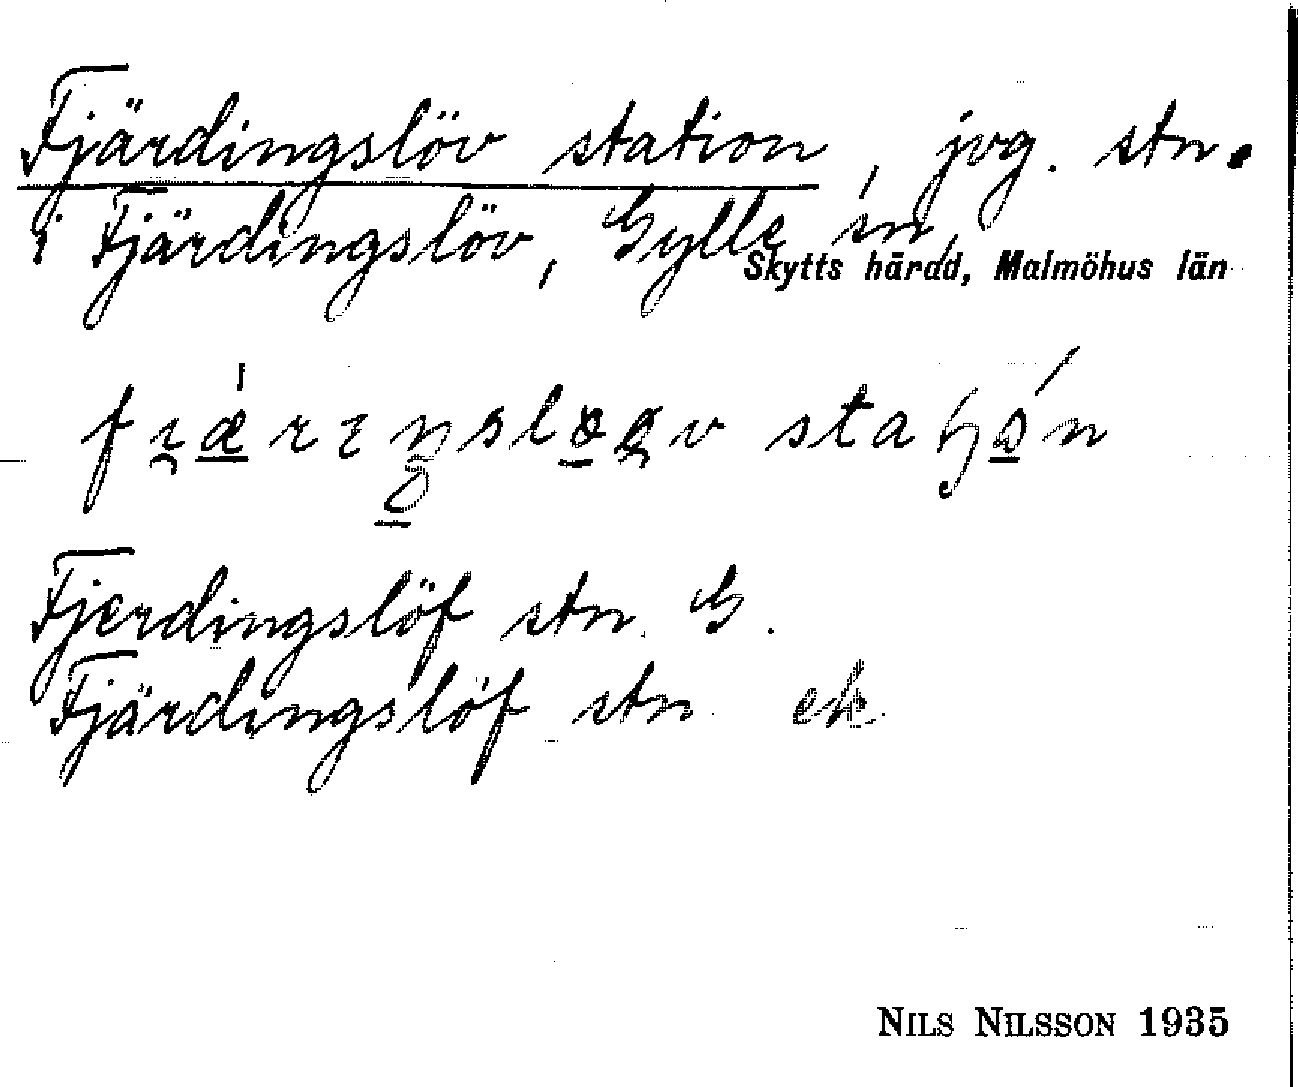 Fjärdingslöv station, jvg. stn.
i Fjärdingslöv, Gylle sn,
Skytts härad, Malmöhus län
Fjerdingslöf stn. G.
Fjärdingslöf stn ek.
NILS NILSSON 1935